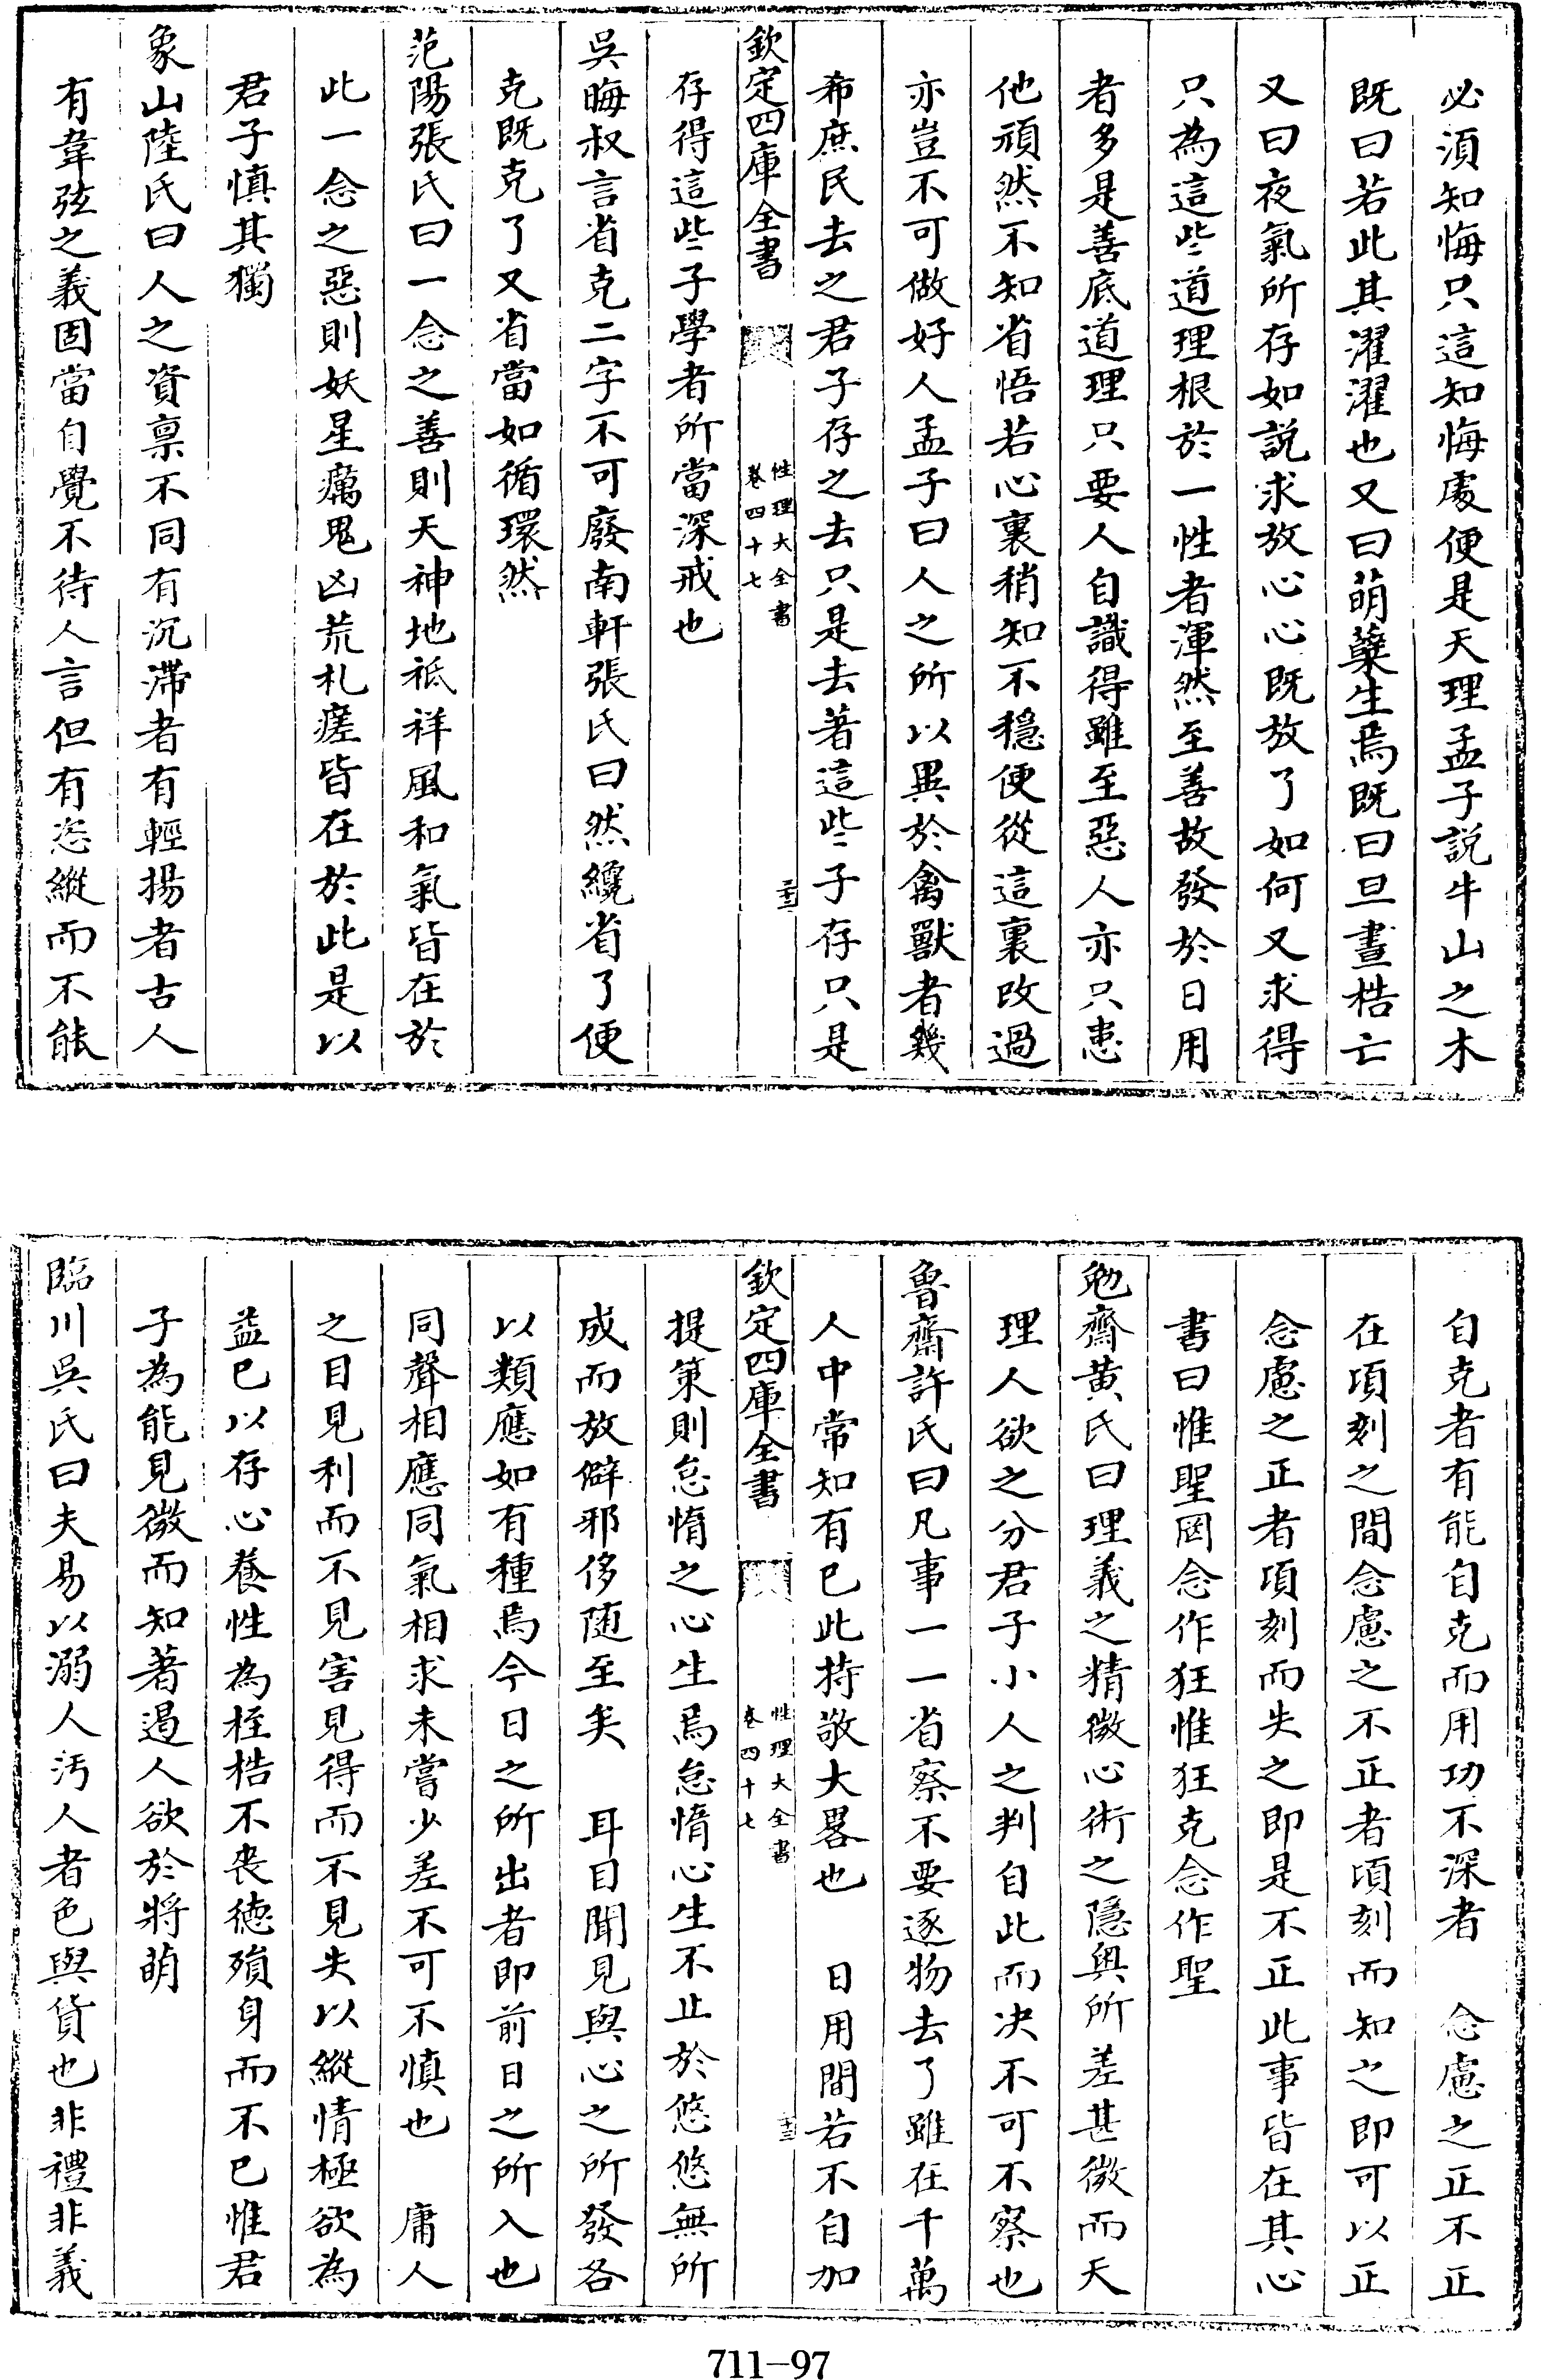 必須知悔只這知悔處便是天理孟子説牛山之木
既曰若此其濯濯也又曰萌蘖生焉既曰旦晝梏亡
又曰夜氣所存如説求放心心既放了如何又求得
只為這些道理根於一性者渾然至善故發於日用
者多是善底道理只要人自識得雖至惡人亦只患
他頑然不知省悟若心裏稍知不穩便從這裏改過
亦豈不可做好人孟子曰人之所以異於禽獸者幾
希庶民去之君子存之去只是去著這些子存只是
欽定四庫全書
性理大全書
卷四十七
三十三
存得這些子學者所當深戒也
吳晦叔言省克二字不可廢南軒張氏曰然纔省了便
克既克了又省當如循環然
范陽張氏曰一念之善則天神地祗祥風和氣皆在於
此一念之惡則妖星癘鬼凶荒札瘥皆在於此是以
君子慎其獨
象山陸氏曰人之資禀不同有沉滯者有輕揚者古人
有韋弦之義固當自覺不待人言但有恣縱而不能
自克者有能自克而用功不深者　念慮之正不正
在頃刻之間念慮之不正者頃刻而知之即可以正
念慮之正者頃刻而失之即是不正此事皆在其心
書曰惟聖罔念作狂惟狂克念作聖
勉齋黄氏曰理義之精微心術之隱奥所差甚微而天
理人欲之分君子小人之判自此而决不可不察也
魯齋許氏曰凡事一一省察不要逐物去了雖在千萬
人中常知有已此持敬大畧也　日用間若不自加
欽定四庫全書
性理大全書
卷四十七
提策則怠惰之心生焉怠惰心生不止於悠悠無所
成而放僻邪侈随至矣　耳目聞見與心之所發各
以類應如有種焉今日之所出者即前日之所入也
同聲相應同氣相求未嘗少差不可不慎也　庸人
之目見利而不見害見得而不見失以縱情極欲為
益已以存心養性為桎梏不喪德殞身而不已惟君
子為能見微而知著遏人欲於將萌
臨川吳氏曰夫易以溺人汚人者色與貨也非禮非義
711-97